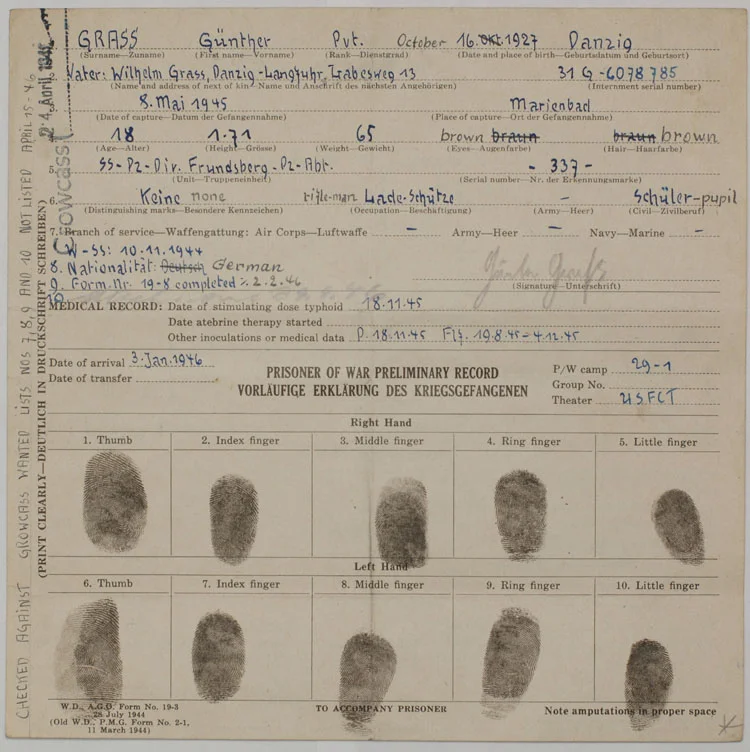 GRASS Günther Pvt. October 16. Okt. 1927 Danzig
(Surname—Zuname) (First name—Vorname) (Rank—Dienstgrad) (Date and place of birth—Geburtsdatum und Geburtsort)
Vater: Wilhelm Grass, Danzig-Langfuhr, Labesweg 13 31 G - 6078 785
(Name and address of next of kin—Name und Anschrift des nächsten Angehörigen) (Internment serial number)
8. Mai 1945 Marienbad
(Date of capture—Datum der Gefangennahme) (Place of capture—Ort der Gefangennahme)
18 1.71 65 brown braun braun brown
(Age—Alter) (Height—Grösse) (Weight—Gewicht) (Eyes—Augenfarbe) (Hair—Haarfarbe)
5. SS-Pz-Div. Frundsberg-Pz-Abt. - 337 -
(Unit—Truppeneinheit) (Serial number—Nr. der Erkennungsmarke)
6. Keine none rifle-man Lade-Schütze – Schüler-pupil
(Distinguishing marks—Besondere Kennzeichen) (Occupation—Beschäftigung) (Army—Heer) (Civil—Zivilberuf)
7. Branch of service—Waffengattung: Air Corps—Luftwaffe – Army—Heer – Navy—Marine –
W-SS: 10.11.1944
8. Nationalität: Deutsch German
9. Form. Nr. 19-8 completed 2.2.46
10.
Günter Grass
(Signature—Unterschrift)
MEDICAL RECORD: Date of stimulating dose typhoid 18.11.45
Date atebrine therapy started
Other inoculations or medical data P. 18.11.45 Fl. 19.8.45 - 4.12.45
Date of arrival 3. Jan. 1946
Date of transfer
PRISONER OF WAR PRELIMINARY RECORD
VORLÄUFIGE ERKLÄRUNG DES KRIEGSGEFANGENEN
P/W camp 29-1
Group No.
Theater USFET
Right Hand
1. Thumb 2. Index finger 3. Middle finger 4. Ring finger 5. Little finger
Left Hand
6. Thumb 7. Index finger 8. Middle finger 9. Ring finger 10. Little finger
W.D., A.G.O. Form No. 19-3
28 July 1944
(Old W.D., P.M.G. Form No. 2-1,
11 March 1944)
TO ACCOMPANY PRISONER
Note amputations in proper space
(PRINT CLEARLY—DEUTLICH IN DRUCKSCHRIFT SCHREIBEN)
CHECKED AGAINST GROWCASS WANTED LISTS NOS 7, 8, 9 AND 10 NOT LISTED APRIL 15-46
24. April 1946
Growcass